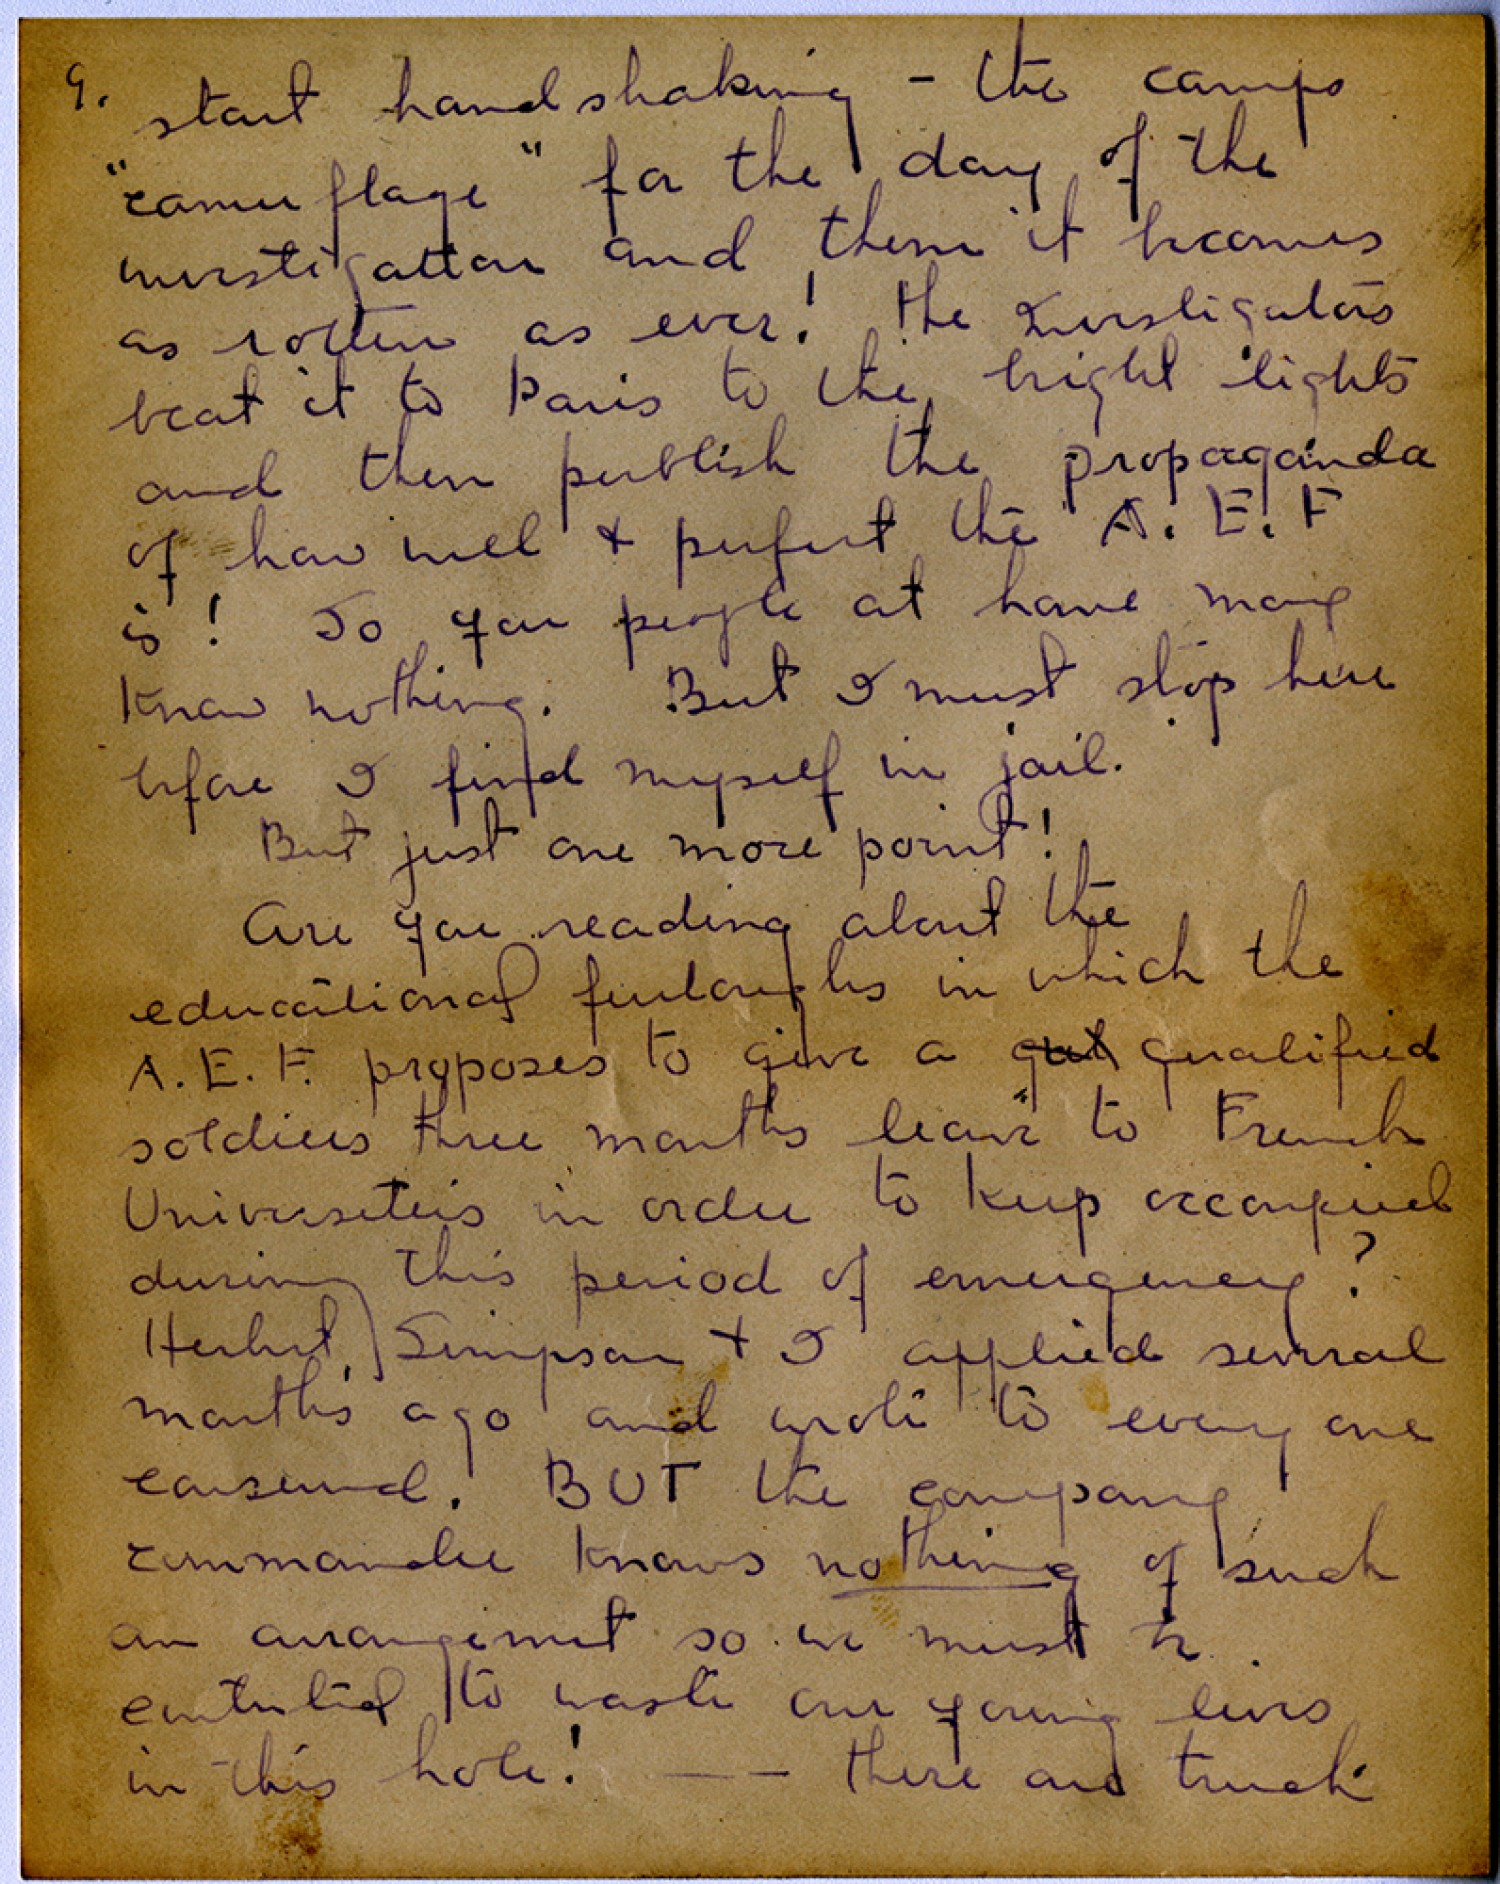 9.
start handshaking – the camps
"camuflage" for the day of the
investigation and then it becomes
as rotten as ever! The Investigators
beat it to Paris to the bright lights
and then publish the propaganda
of how well + perfect the A. E. F
is! So you people at home may
know nothing. But I must stop here
before I find myself in jail.
But just one more point!
Are you reading about the
educational furloughs in which the
A. E. F. proposes to give a qual qualified
soldiers three months leave to French
Universiteis in order to keep occoupied
during this period of emergency?
Herbert, Simpson + I applied several
months ago and wrote to every one
conserned. BUT the company
commander knows nothing of such
an arrangement so we must be
contented to waste our young lives
in this hole! — — There are truck